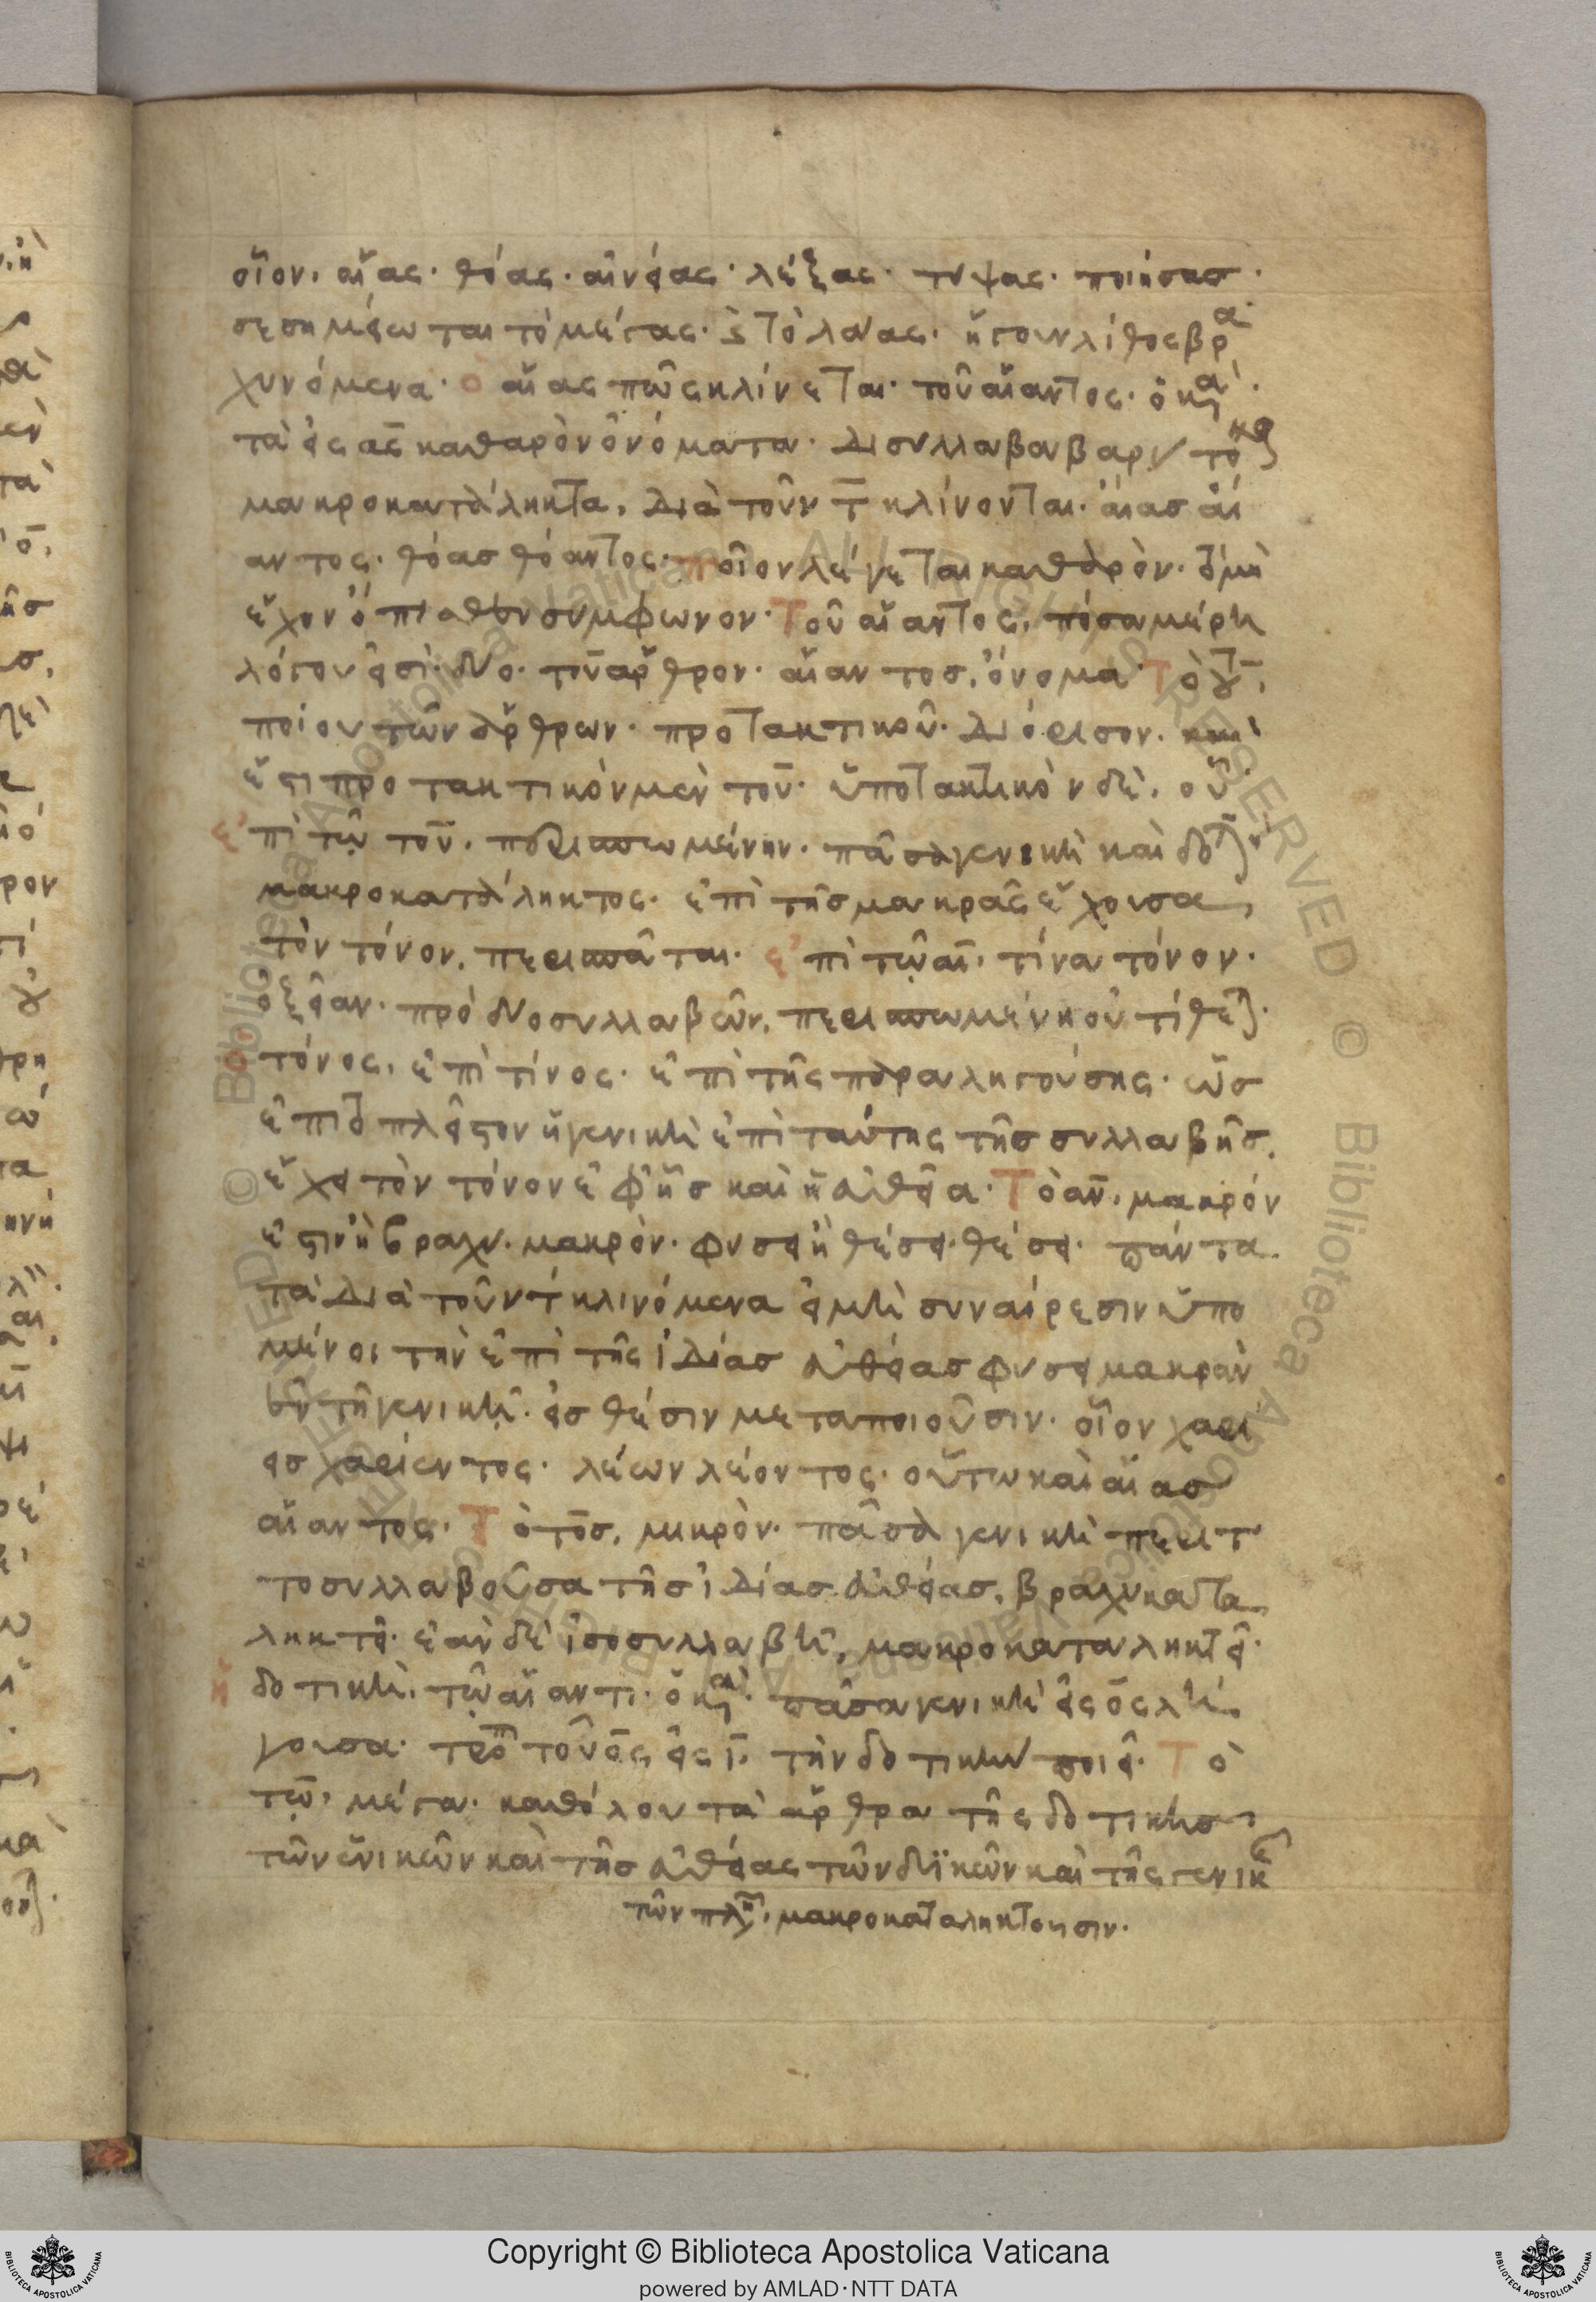 οἷον. αἴας. θόας. αἰνείας. λέξας. τύψας. ποιήσας.
σεσημείωται τὸ μέγας. καὶ τὸ λᾶας. ἤγουν λίθος βρα
χυνόμενα. Ὁ αἴας πῶς κλίνεται. τοῦ αἴαντος. ὁ κα.
τὰ εἰς ας καθαρὸν ὀνόματα. δισύλλαβα βαρύτο
μακροκατάληκτα. διὰ τοῦ ντ κλίνονται. αἴας αἴ
αντος. θόας θόαντος. ποῖον λέγεται καθαρὸν. τὸ μὴ
ἔχον ὄπισθεν σύμφωνον. Τοῦ αἴαντος, πόσα μέρη
λόγου εἰσὶ. δύο. τοῦ ἄρθρον. αἴαντος, ὄνομα. Τὸ τοῦ,
ποίον τῶν ἄρθρων. προτακτικοῦ. διόρισον. καὶ
ἔστι προτακτικὸν μὲν τοῦ. ὑποτακτικὸν δὲ, οὗ.
ἐπὶ τῷ τοῦ. περισπωμένην. πᾶσα γενικὴ καὶ δοτικὴ
μακροκατάληκτος. ἐπὶ τῆς μακρᾶς ἔχουσα
τὸν τόνον, περισπᾶται. ἐπὶ τῷ αι, τίνα τόνον.
ὀξεῖαν. πρὸ δύο συλλαβῶν, περισπωμένη οὐ τίθεται.
ὁ τόνος, ἐπὶ τίνος. ἐπὶ τῆς παραληγούσης. ὡς
ἐπιτοπλεῖστον ἡ γενικὴ ἐπὶ ταύτης τῆς συλλαβῆς,
ἔχει τὸν τόνον ἐφ' ἧς καὶ ἡ εὐθεῖα. Τὸ αν, μακρόν
ἐστιν ἢ βραχύ. μακρὸν. φύσει ἢ θέσει. θέσει. πάντα
τὰ διὰ τοῦ ντ κλινόμενα εἰ μὴ συναίρεσιν ὑπο
μένοι τὴν ἐπὶ τῆς ἰδίας εὐθείας φύσει μακρὰν
ἐν τῇ γενικῇ. εἰς θέσιν μεταποιοῦσιν. οἷον χαρί
εις χαρίεντος. λέων λέοντος. οὕτω καὶ αἴας
αἴαντος. Τὸ τος, μικρὸν. πᾶσα γενικὴ περιτ
τοσυλλαβοῦσα τῆς ἰδίας εὐθείας, βραχυκατα
ληκτεῖ. ἐὰν δὲ ἰσοσυλλαβῇ, μακροκαταληκτεῖ.
ἡ δοτικὴ. τῷ αἴαντι. ὁ κα. πᾶσα γενικὴ εἰς ος λή
γουσα. τροπῇ τοῦ ος εἰς ι. τὴν δοτικὴν ποιεῖ. Τὸ
τῷ, μέγα. καθόλου τὰ ἄρθρα τῆς δοτικῆς
τῶν ἑνικῶν καὶ τῆς εὐθείας τῶν δυϊκῶν καὶ τῆς γενικῆς
τῶν πλη, μακροκαταληκτοῦσιν.